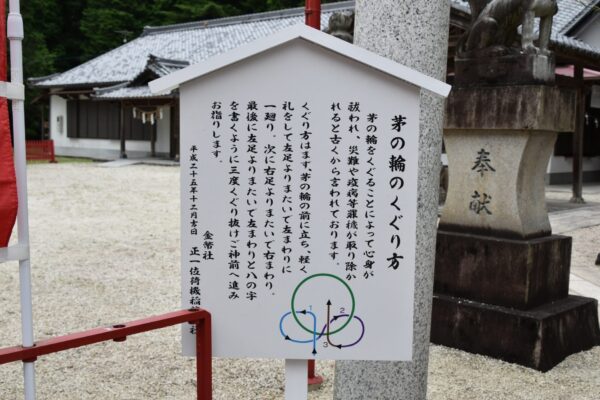 茅の輪のくぐり方
茅の輪をくぐることによって心身が
祓われ、災難や疫病等罹穢が取り除か
れると古くから言われております。
くぐり方はまず、茅の輪の前に立ち、軽く
礼をして左足よりまたいで左まわりに
一廻り、次に右足よりまたいで右まわり、
最後に左足よりまたいで左まわりと八の字
を書くように三度くぐり抜けご神前へ進み
お詣りします。
平成二十五年十二月吉日
金幣社
正一位荷機稲
社
1
2
3
奉献